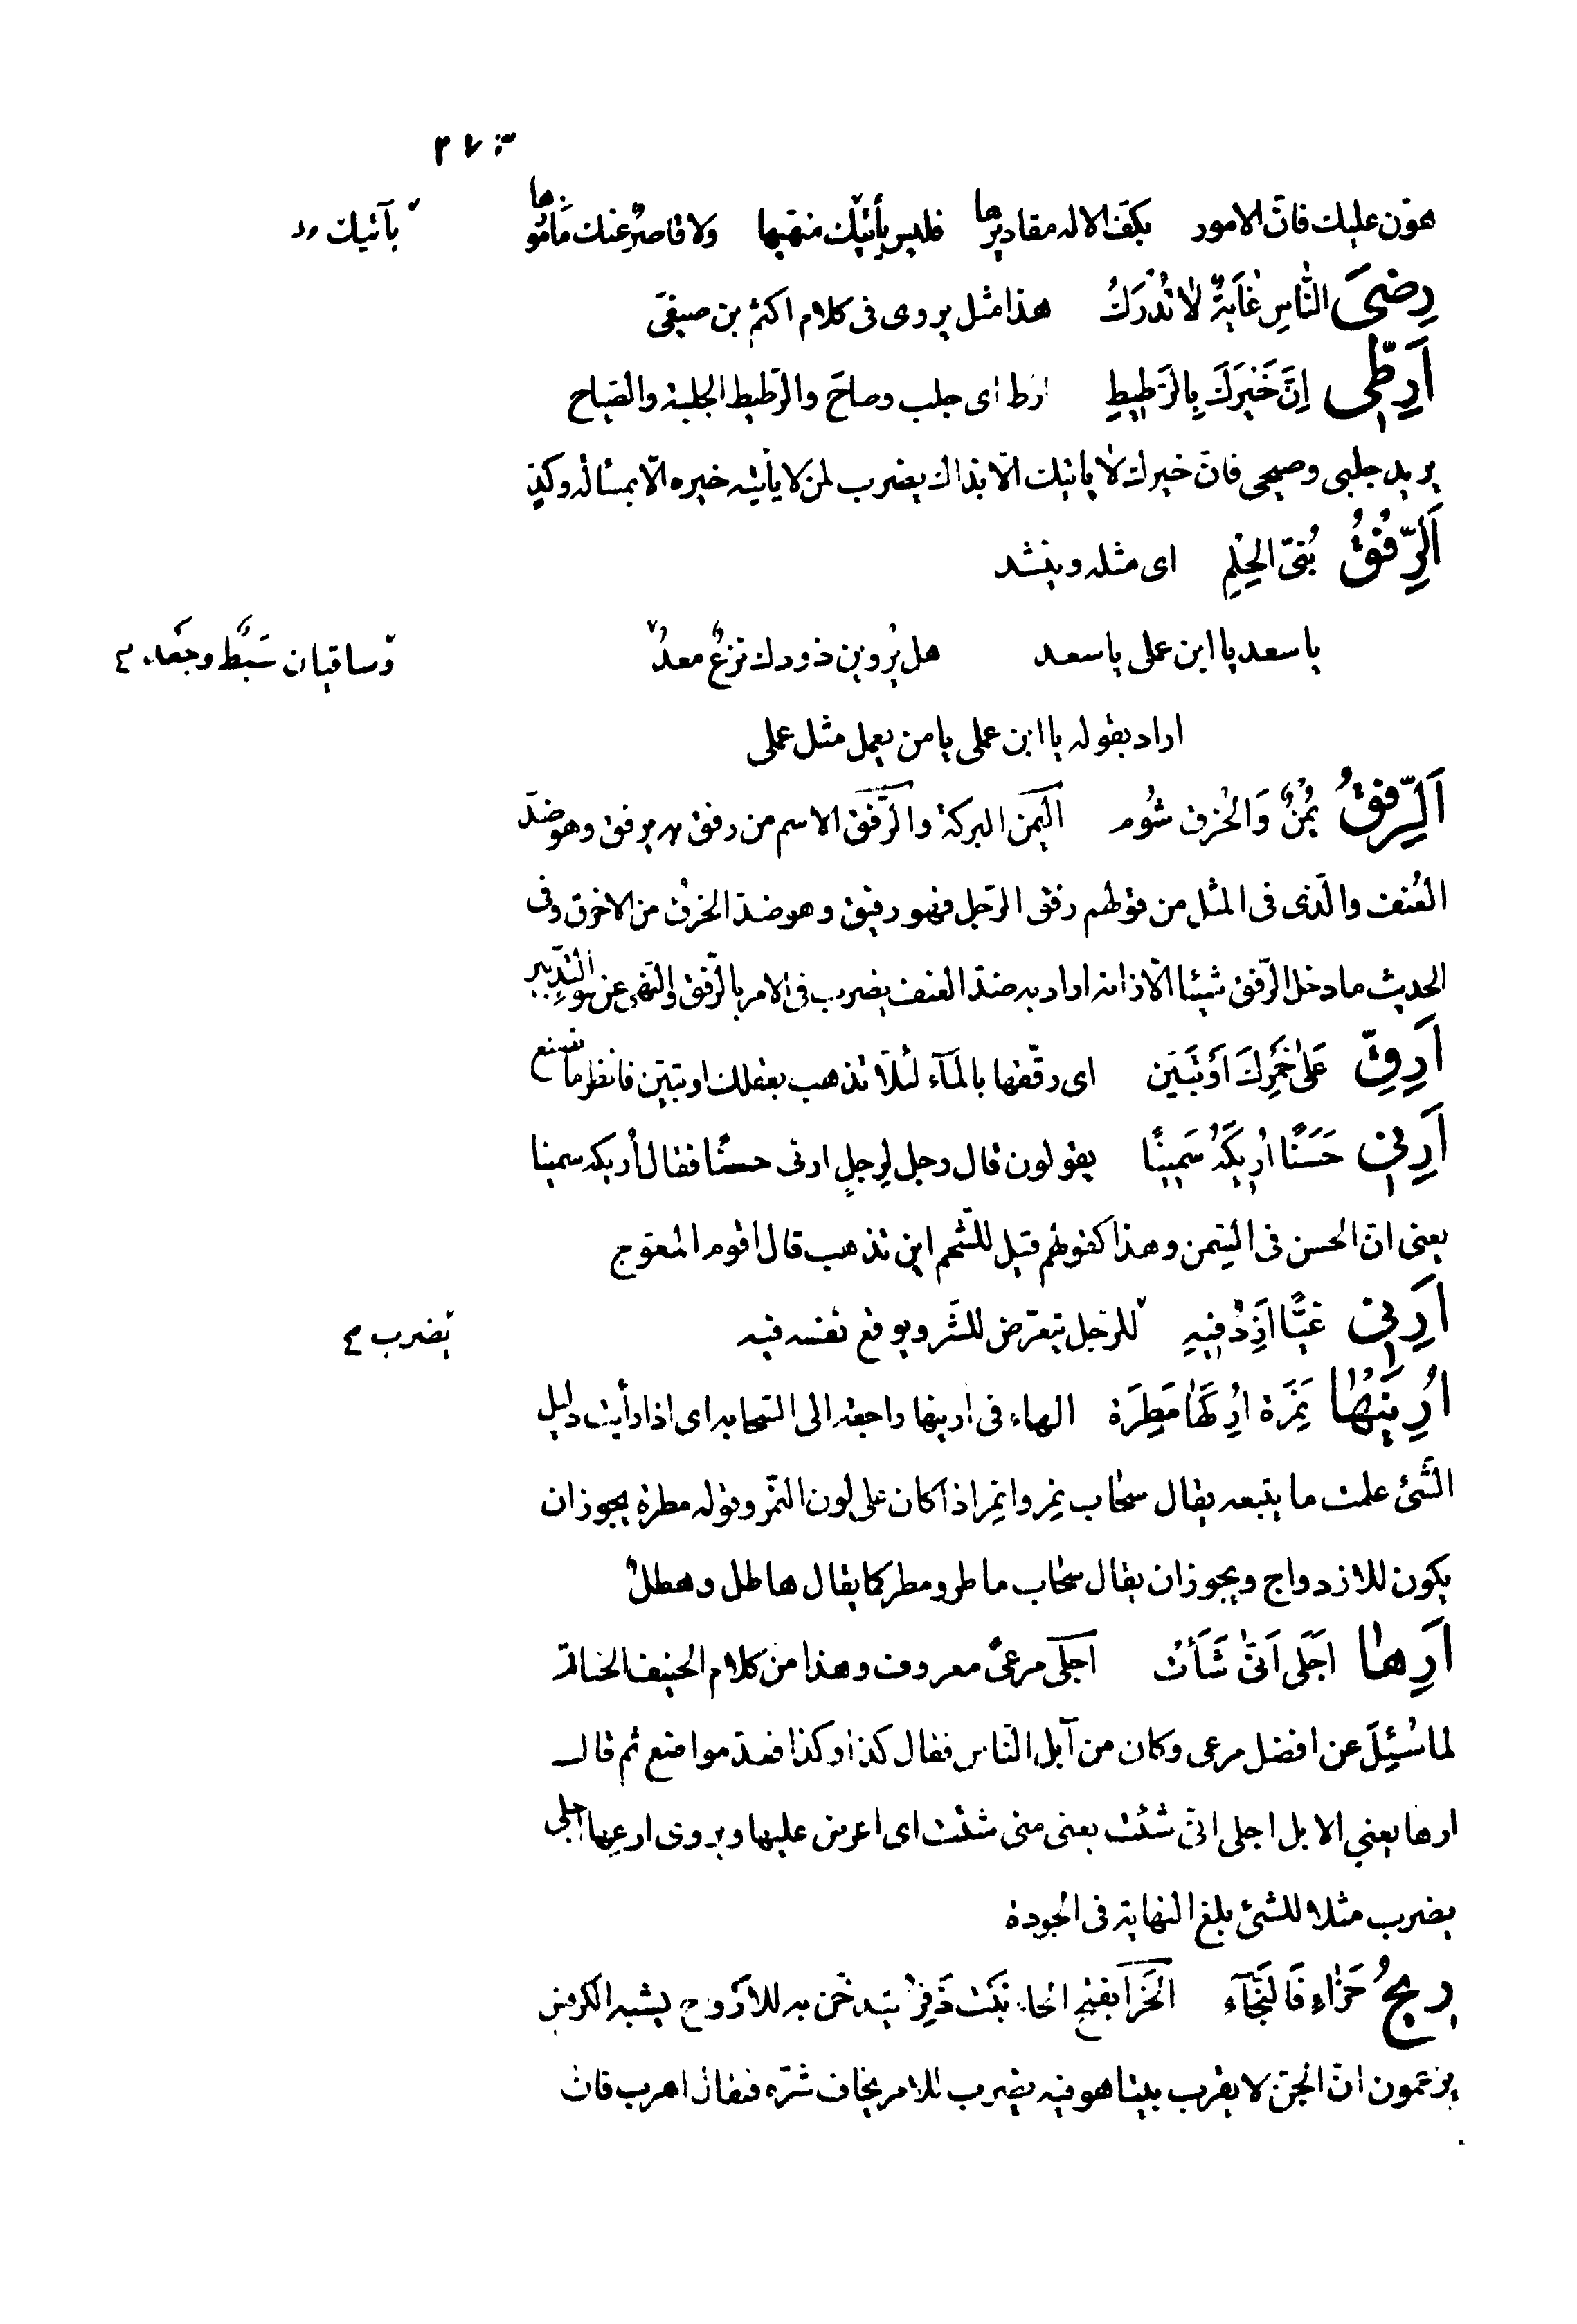 هوّن عليك فانّ الامور بكفّ الاله مقاديرها فليس بآتيك منهيها ولا قاصرٌ عنك مأمورها بآتيك
رِضَى النَّاسِ غَايَةٌ لَا تُدْرَكُ هذا مثل يروى فى كلام اكثم بن صيفىّ
اَرِطِّى اِنَّ خَيْرَكَ بِالرَّطِيطِ ارط اى جلب وصاح والرّطيط الجلبة والصّياح
يريد جلبى وصيحى فانّ خيرك لا يأتيك الّا بذاك يضرب لمن لا يأتيه خيره الّا بمسألة وكدّ
اَلرِّفْقُ بُنَىُّ الحِلْمِ اى مثله وينشد
يا سعد يا ابن عملى يا سعد هل يُروين ذودك نزعٌ معدٌ وساقيان سَبِطٌ وجعد
اراد بقوله يا ابن عملى يا من يعمل مثل عملى
اَلرِّفْقُ يُمْنٌ وَالخُرْقُ شُوم اليمن البركة والرّفق الاسم من رفق به يرفق وهو ضدّ
العُنف والّذى فى المثل من قولهم رفق الرّجل فهو رفيق وهو ضدّ الخرق من الاخرق وفى
الحديث ما دخل الرّفق شيئا الّا زانه اراد به ضدّ العنف يضرب فى الامر بالرّفق والنّهى عن سوء التّدبير
اَرِقّ عَلى خَمْرِكَ اَوْ تَبَيَّن اى رقّقها بالمآء لئلّا تذهب بعقلك او تبيّن فانظر ما تصنع
اَرِنِى حَسَنًا اُرِيكَهُ سَمِينًا يقولون قال رجل لرجلٍ ارنى حسنًا فقال أريكه سمينا
يعنى انّ الحسن فى السّمن وهذا كقولهم قيل للشّحم اين تذهب قال اقوم المعوّج
اَرِنِى غَيًّا اَزِدْ فِيهِ للرّجل يتعرّض للشّر ويوقع نفسه فيه يضرب
اَرِنِيهَا نَمِرَة اُرِكَهَا مَطِرَة الهاء فى ارنيها راجعة الى السّحابة اى اذا رأيت دليل
الشَّئ علمت ما يتبعه يقال سحاب نمِر وانمر اذا كان على لون النّمر وقوله مطرة يجوز ان
يكون للازدواج ويجوز ان يقال سحاب ماطر ومطر كما يقال هاطل وهطلٌ
اَرِهَا اَجَلَى اَنَّى شَأْتَ اجلى مرعىً معروف وهذا من كلام الحنيف الحناتم
لما سُئِلَ عن افضل مرعى وكان من آبل النّاس فقال كذا وكذا فعدّ مواضع ثم قال
ارها يعنى الابل اجلى انّى شئت يعنى متى شئت اى اعرض عليها ويروى ارعها اجلى
يضرب مثلا للشئ بلغ النهاية فى الجودة
رِيحُ حَزَاءٍ فَالنَّجَآء الحَزَا بفتح الحاء نَبت ذَفِر يتدخّن به للارواح يشبه الكرفس
يزعمون انّ الجنّ لا يقرب بيتا هو فيه يضرب للامر يخاف شرّه فيقال اهرب فان